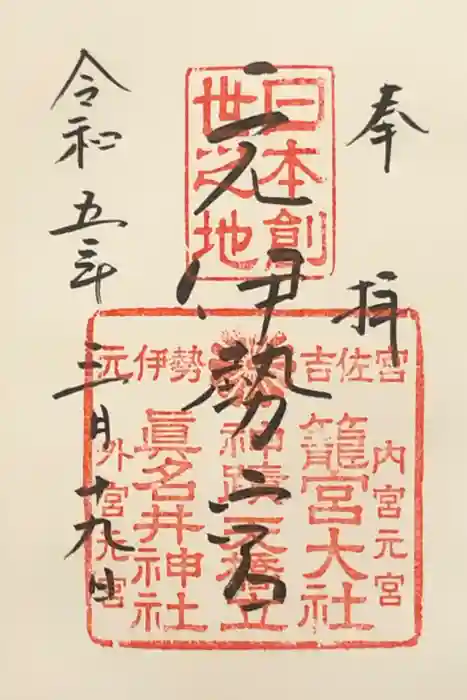 奉拝
日本創
世之地
元伊勢
元伊勢
吉佐宮
内宮元宮
籠宮大社
神蹟天橋立
眞名井神社
外宮元宮
令和五年三月十九日